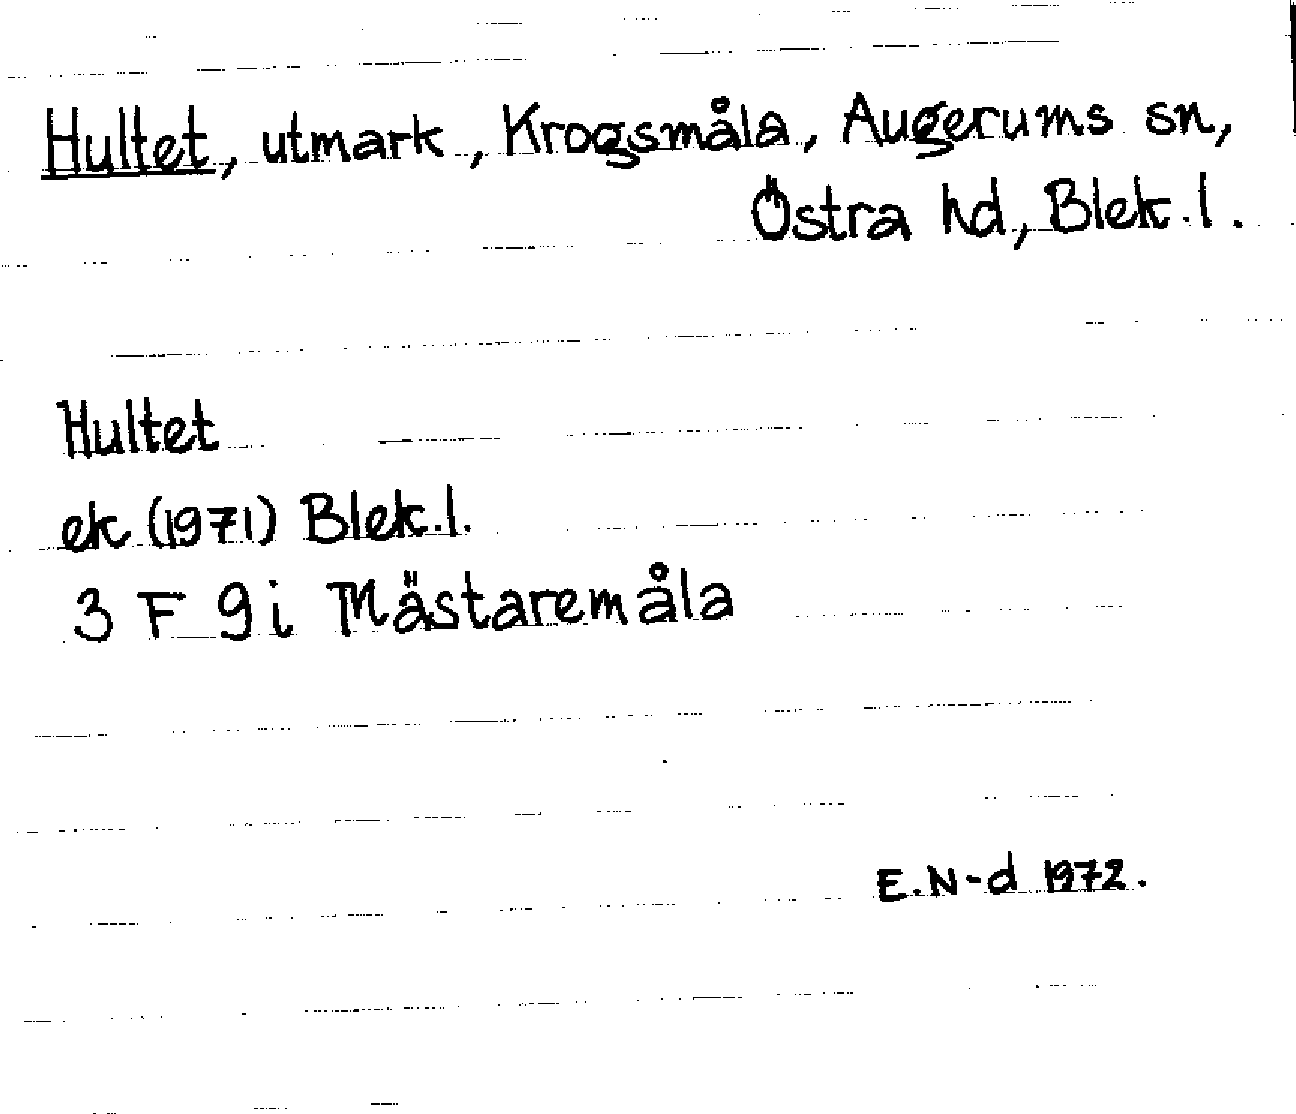 Hultet, utmark, Krogsmåla, Augerums sn,
Östra hd, Blek. l.
Hultet
ek (1971) Blek. l.
3 F 9 i Mästaremåla
E. N-d 1972.